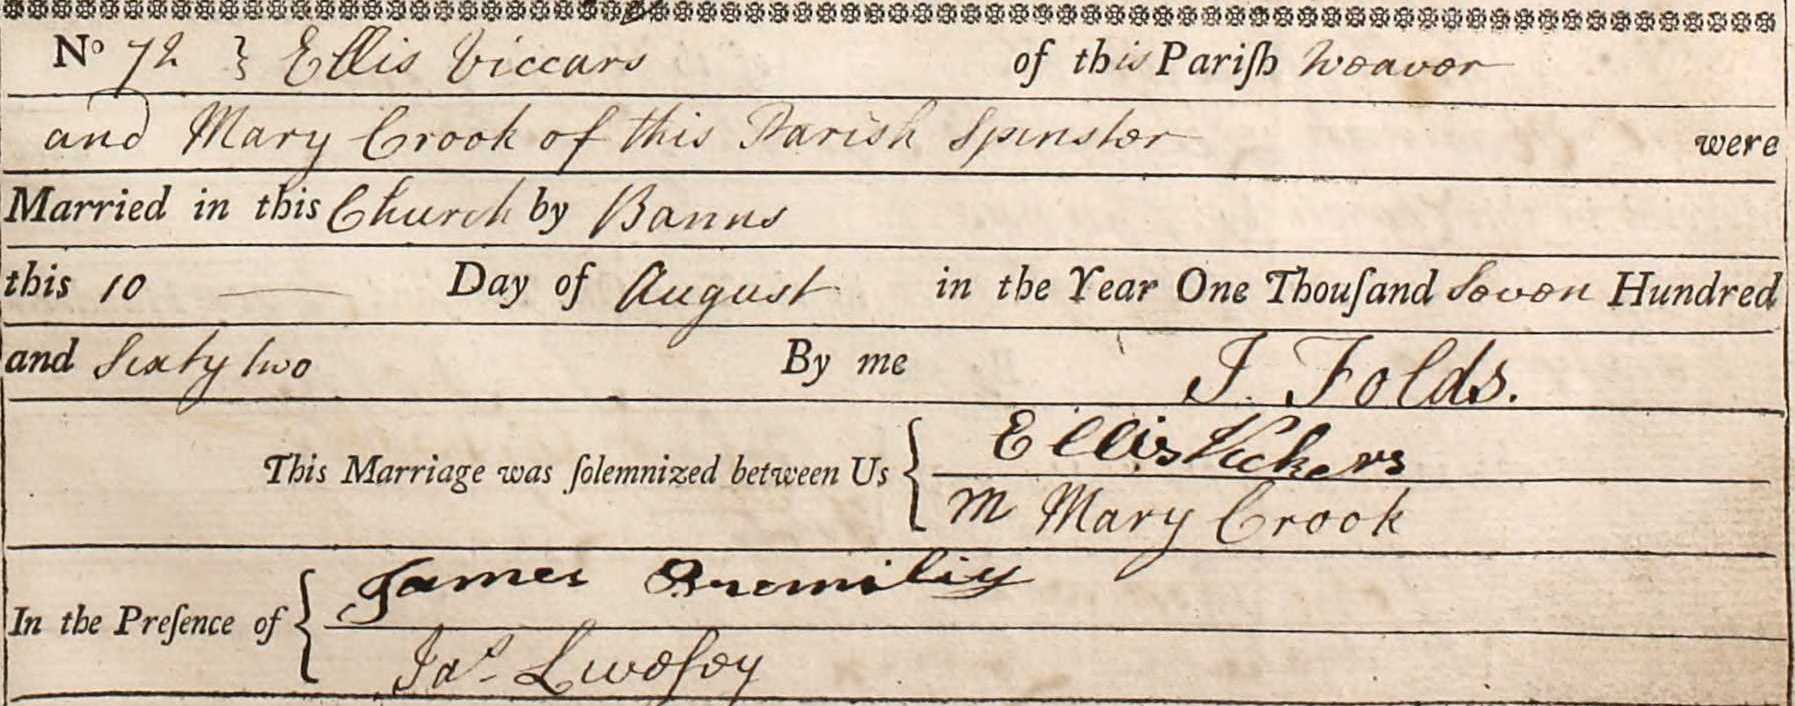 No 72 } Ellis Viccars of this Pariſh Weaver
and Mary Crook of this Parish Spinster were
Married in this Church by Banns
this 10 — Day of August in the Year One Thouſand Seven Hundred
and Sixty two By me J. Folds.
This Marriage was ſolemnized between Us { Ellis Vickers
M Mary Crook
In the Preſence of { James Bromiliy
Jas. Livesey